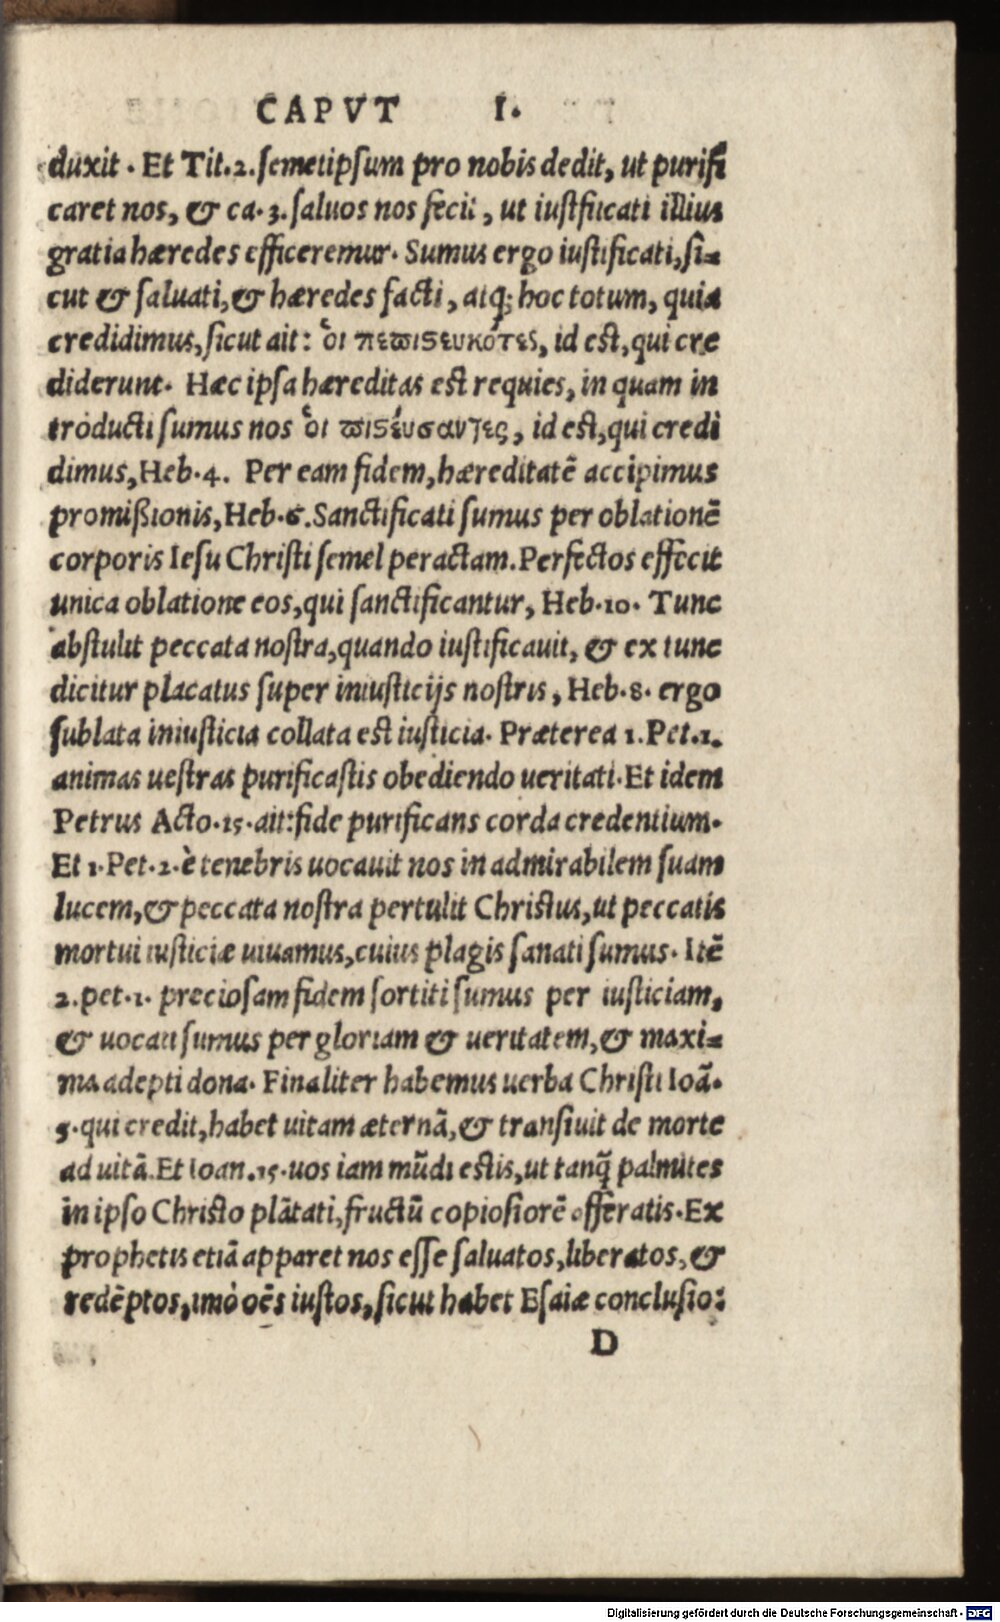 CAPVT I.
duxit. Et Tit.2. semetipsum pro nobis dedit, ut purifi
caret nos, & ca.3. saluos nos fecit, ut iustfiicati illius
gratia hæredes efficeremur. Sumus ergo iustificati, si-
cut & saluati, & hæredes facti, atq; hoc totum, quia
credidimus, sicut ait: ὁι πεπιϛευκότες, id est, qui cre
diderunt. Hæc ipsa hæreditas est requies, in quam in
troducti sumus nos ὁι πιϛέυσαντες, id est, qui credi
dimus, Heb.4. Per eam fidem, hæreditatē accipimus
promißionis, Heb.6. Sanctificati sumus per oblationē
corporis Iesu Christi semel peractam. Perfectos effecit
unica oblatione eos, qui sanctificantur, Heb.10. Tunc
abstulit peccata nostra, quando iustificauit, & ex tunc
dicitur placatus super iniusticijs nostris, Heb.8. ergo
sublata iniusticia collata est iusticia. Præterea 1.Pet.1.
animas uestras purificastis obediendo ueritati. Et idem
Petrus Acto.15. ait: fide purificans corda credentium.
Et 1.Pet.2. è tenebris uocauit nos in admirabilem suam
lucem, & peccata nostra pertulit Christus, ut peccatis
mortui iusticiæ uiuamus, cuius plagis sanati sumus. Itē
2.pet.1. preciosam fidem sortiti sumus per iusticiam,
& uocati sumus per gloriam & ueritatem, & maxi-
ma adepti dona. Finaliter habemus uerba Christi Ioā.
5. qui credit, habet uitam æternā, & transiuit de morte
ad uitā. Et Ioan.15. uos iam mūdi estis, ut tanq̃ palmites
in ipso Christo plātati, fructū copiosiorē offeratis. Ex
prophetis etiā apparet nos esse saluatos, liberatos, &
redēptos, imò oēs iustos, sicut habet Esaiæ conclusio:
D
Digitalisierung gefördert durch die Deutsche Forschungsgemeinschaft - DFG